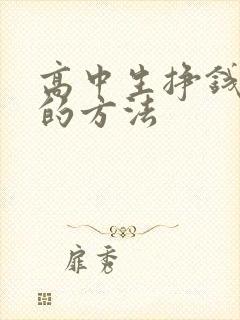 高中生挣钱
的方法
扉秀